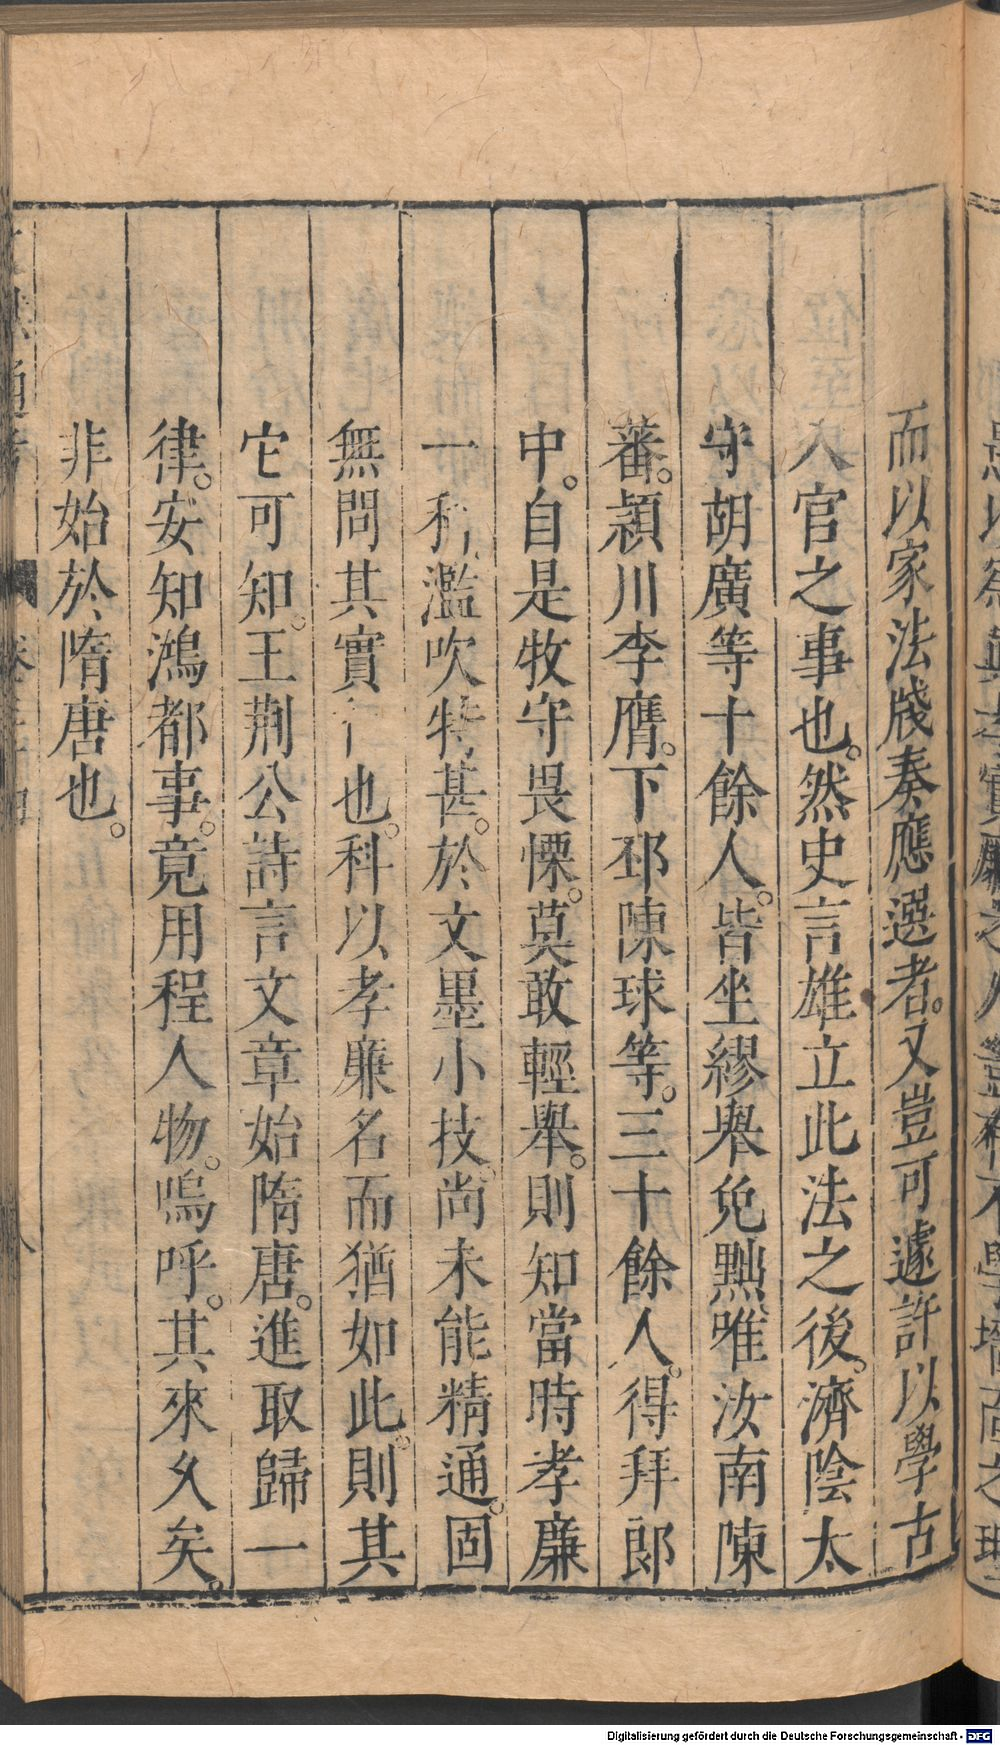 而以家法牋奏應選者。又豈可遽許以學古
入官之事也。然史言雄立此法之後。濟陰太
守胡廣等十餘人。皆坐繆舉免黜唯汝南陳
蕃。潁川李膺。下邳陳球等。三十餘人。得拜郎
中。自是牧守畏慄。莫敢輕舉。則知當時孝廉
一科濫吹特甚。於文墨小技尚未能精通。固
無問其實行也。科以孝廉名而猶如此。則其
它可知。王荆公詩言文章始隋唐。進取歸一
律。安知鴻都事。竟用程人物。嗚呼。其來久矣。
非始於隋唐也。
通考
卷三十四
八
Digitalisierung gefördert durch die Deutsche Forschungsgemeinschaft - DFG